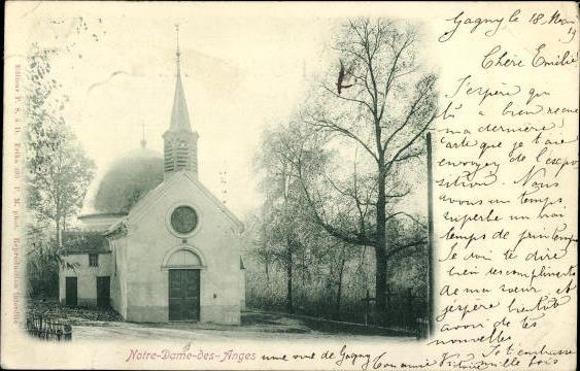 Gagny le 18 Mai
Chère Emilie
J'espère que
tu a bien reçue
ma dernière
carte que je t'ai
envoyer de l'expo
sition. Nous
avons un temps
superbe un vrai
temps de printemps
Je dois te dire
bien des compliments
de ma soeur et
j'espère bientôt
avoir de tes
nouvelles
Je t'embrasse
mille fois
Notre-Dame-des-Anges une vue de Gagny Ton amie